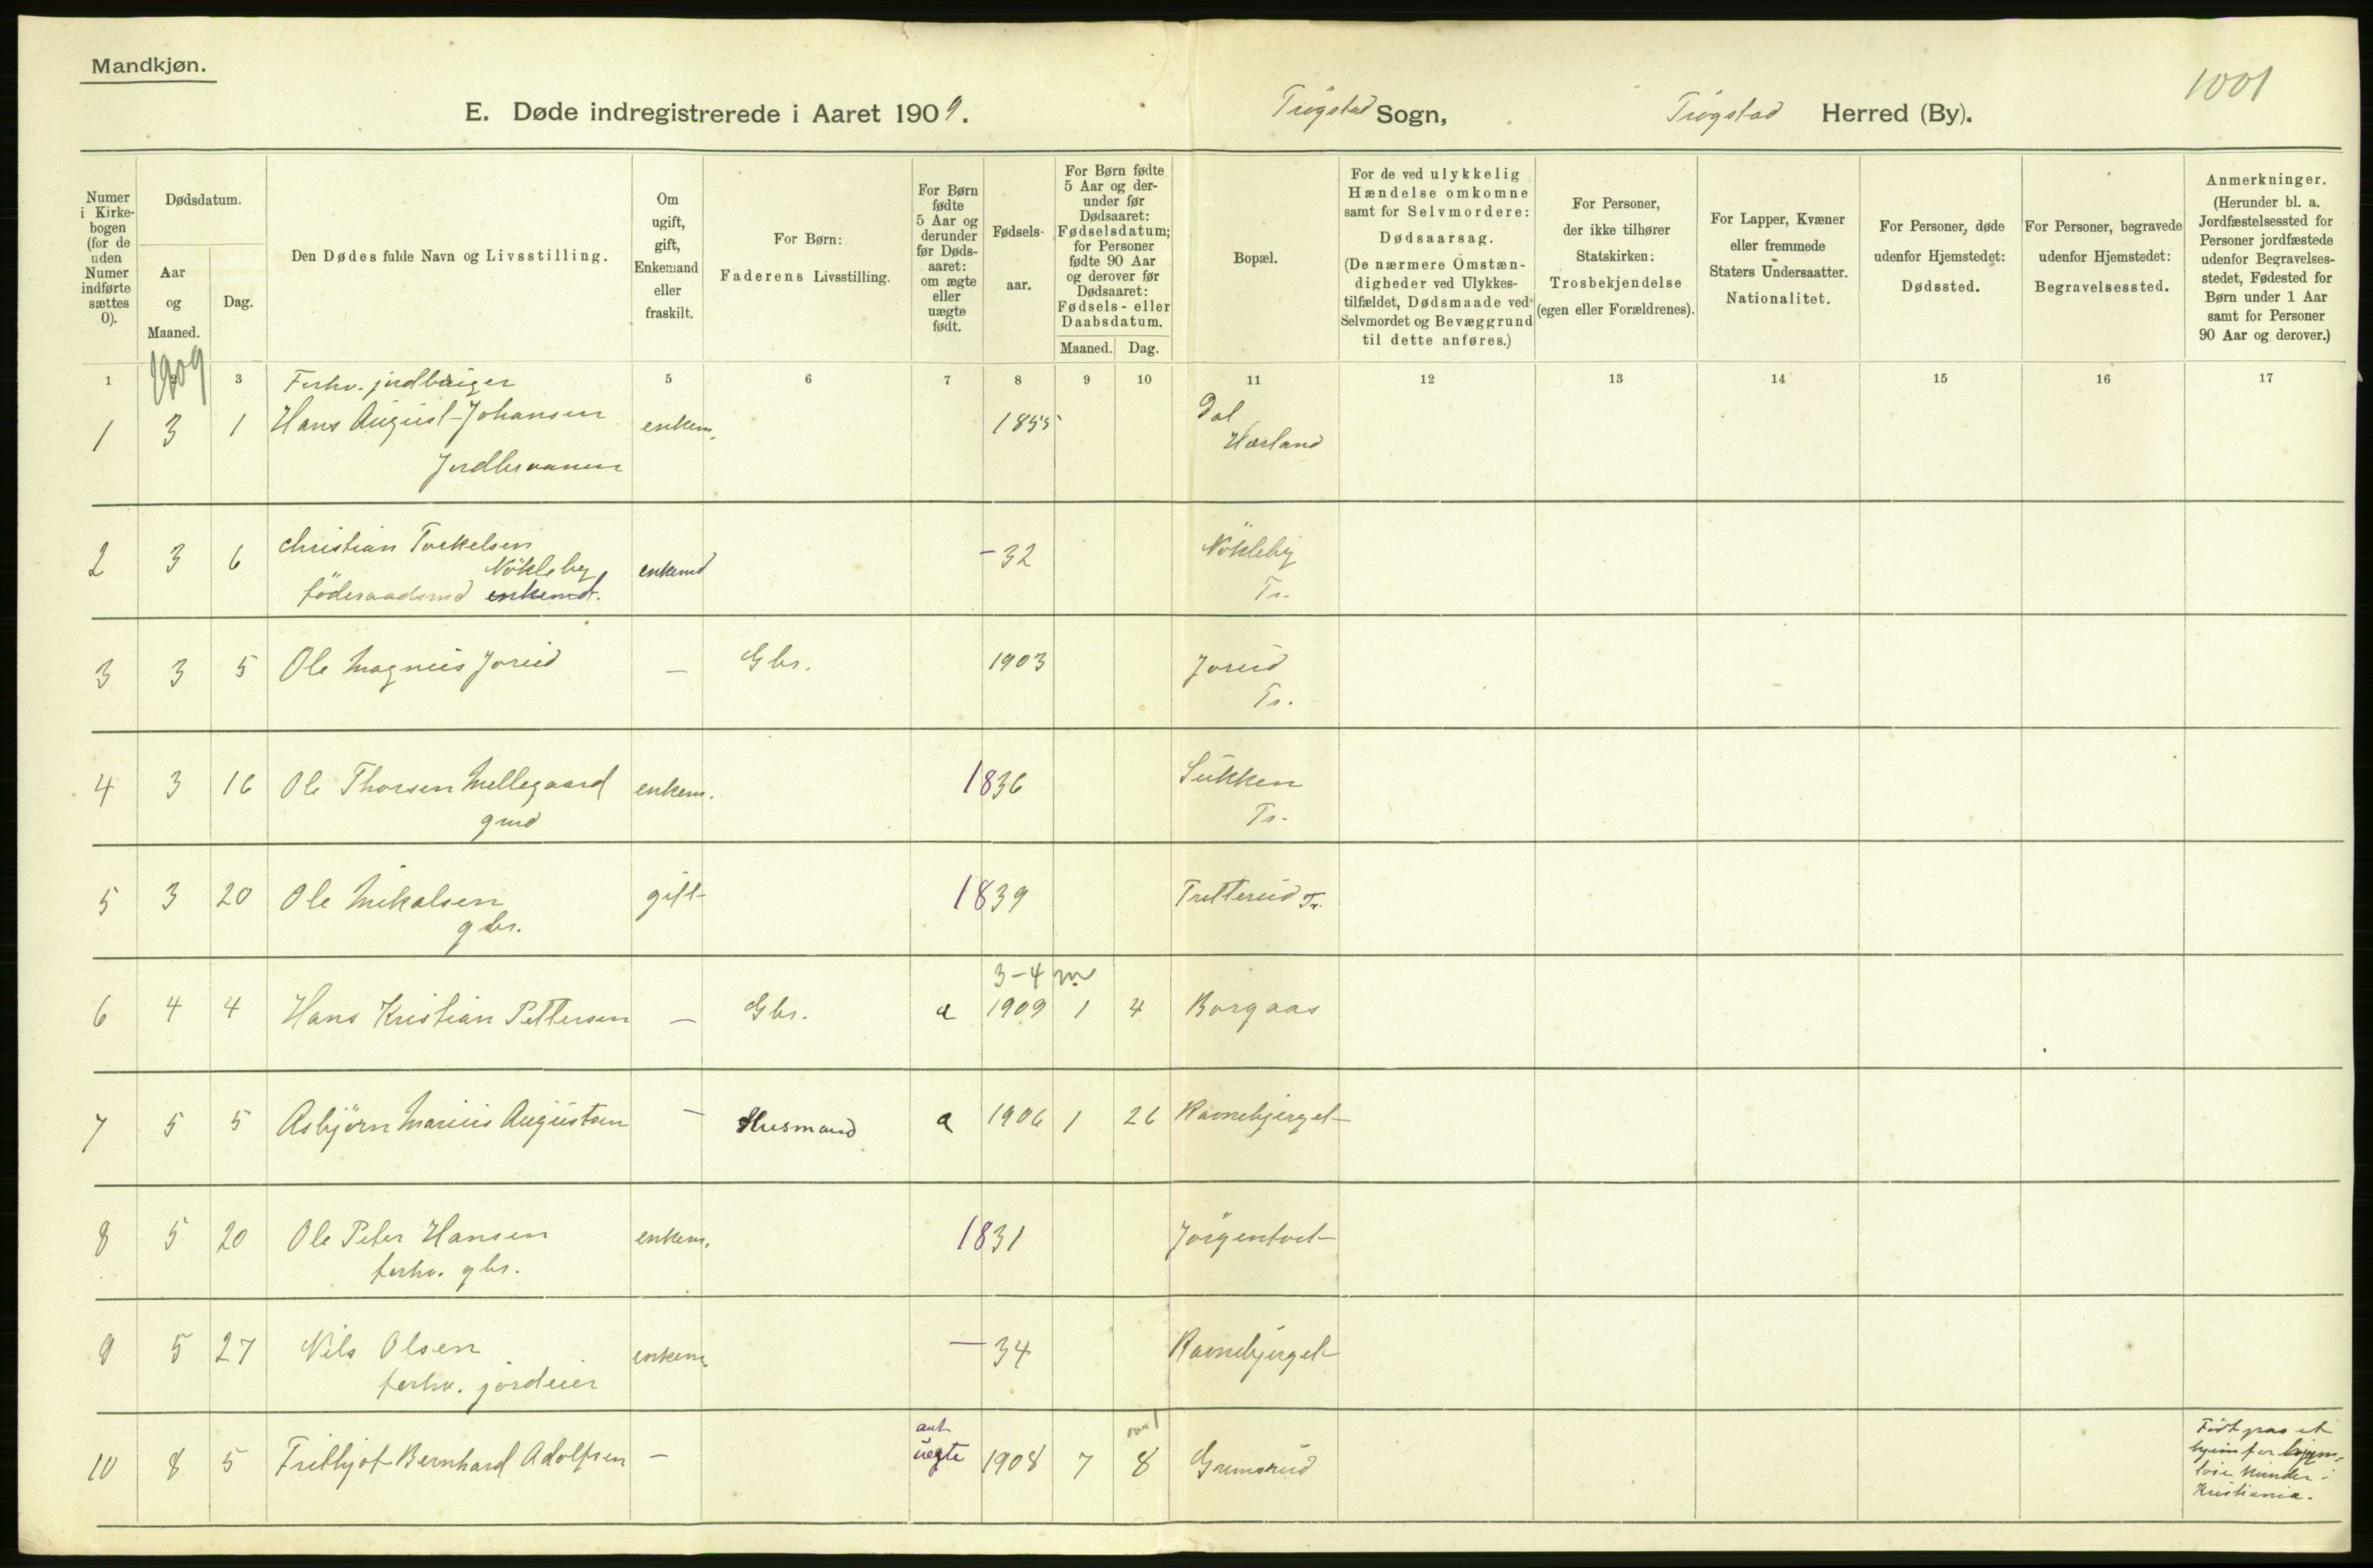 Mandkjøn.
1001
E. Døde indregistrerede i Aaret 1909. Trøgstad Sogn, Trøgstad Herred (By).
Numer i Kirke-bogen (for de uden Numer indførte sættes 0).
Dødsdatum.
Aar og Maaned.
Dag.
Den Dødes fulde Navn og Livsstilling.
Om ugift, gift, Enkemand eller fraskilt.
For Børn: Faderens Livsstilling.
For Børn fødte 5 Aar og derunder før Døds-aaret: om ægte eller uægte født.
Fødsels-aar.
For Børn fødte 5 Aar og der-under før Dødsaaret: Fødselsdatum; for Personer fødte 90 Aar og derover før Dødsaaret: Fødsels- eller Daabsdatum.
Maaned. Dag.
Bopæl.
For de ved ulykkelig Hændelse omkomne samt for Selvmordere: Dødsaarsag. (De nærmere Omstæn-digheder ved Ulykkes-tilfældet, Dødsmaade ved Selvmordet og Bevæggrund til dette anføres.)
For Personer, der ikke tilhører Statskirken: Trosbekjendelse (egen eller Forældrenes).
For Lapper, Kvæner eller fremmede Staters Undersaatter. Nationalitet.
For Personer, døde udenfor Hjemstedet: Dødssted.
For Personer, begravede udenfor Hjemstedet: Begravelsessted.
Anmerkninger. (Herunder bl. a. Jordfæstelsessted for Personer jordfæstede udenfor Begravelses-stedet, Fødested for Børn under 1 Aar samt for Personer 90 Aar og derover.)
1 2 3 5 6 7 8 9 10 11 12 13 14 15 16 17
1909
Forhv. jordbruger
1 3 1 Hans August Johansen enkem. 1855 Dal
Jordbraanen Hærland
2 3 6 Christian Torkelsen enkemd - 32 Nökleby
Nökleby
föderaadsmd enkemd. Tr.
3 3 5 Ole Magnus Jorud — Gbr. 1903 Jorud
Tr.
4 3 16 Ole Thorsen Mellegaard enkem. 1836 Sukken
gmd Tr.
5 3 20 Ole Mikalsen gift 1839 Tretterud Tr.
gbr.
3-4 m
6 4 4 Hans Kristian Pettersen — Gbr. a 1909 1 4 Borgaas
7 5 5 Asbjörn Marius Augustsen — Husmand a 1906 1 26 Ravnebjerget
8 5 20 Ole Peter Hansen enkem. 1831 Jörgentvet
forhv. gbr.
9 5 27 Nils Olsen enkem. — 34 Ravnebjerget
forhv. jordeier
10 8 5 Frithjof Bernhard Adolfsen — uegte 1908 7 8 Gremsrud
Født paa et
hjem for hjem-
løse kvinder i
Kristiania.